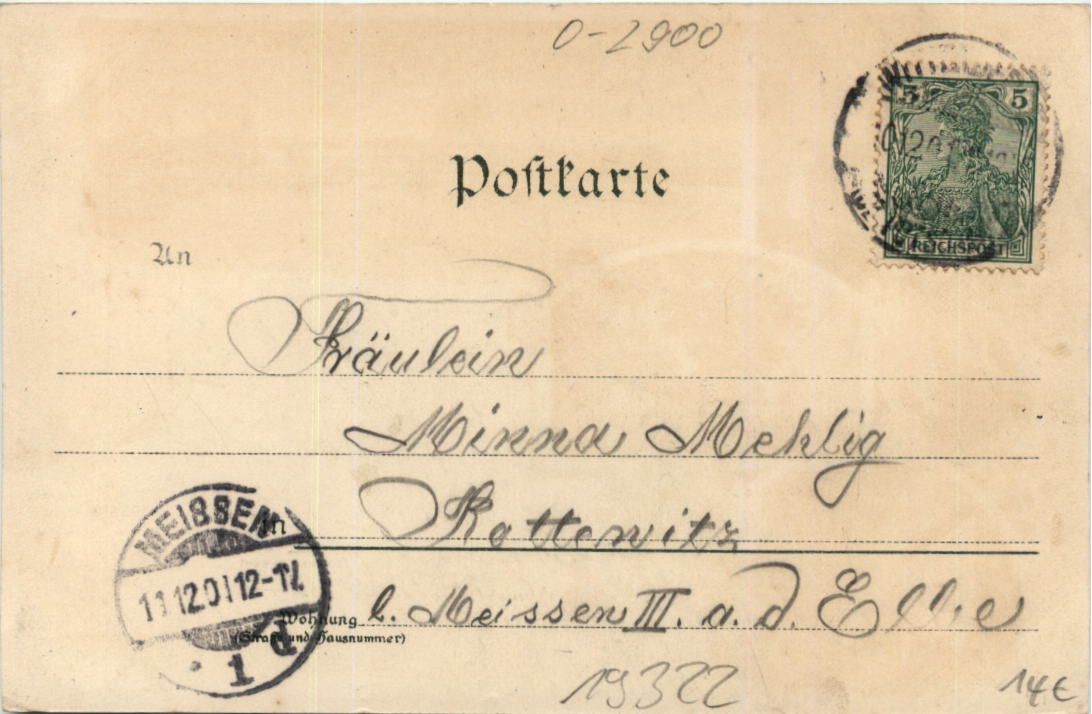 0-2900
5 5
REICHSPOST
Postkarte
An
Fräulein
Minna Mehlig
in Rottewitz
MEISSEN
11 12 01 12-1N.
1 d
Wohnung b. Meissen III. a. d. Elbe
(Straße und Hausnummer)
19322
14€